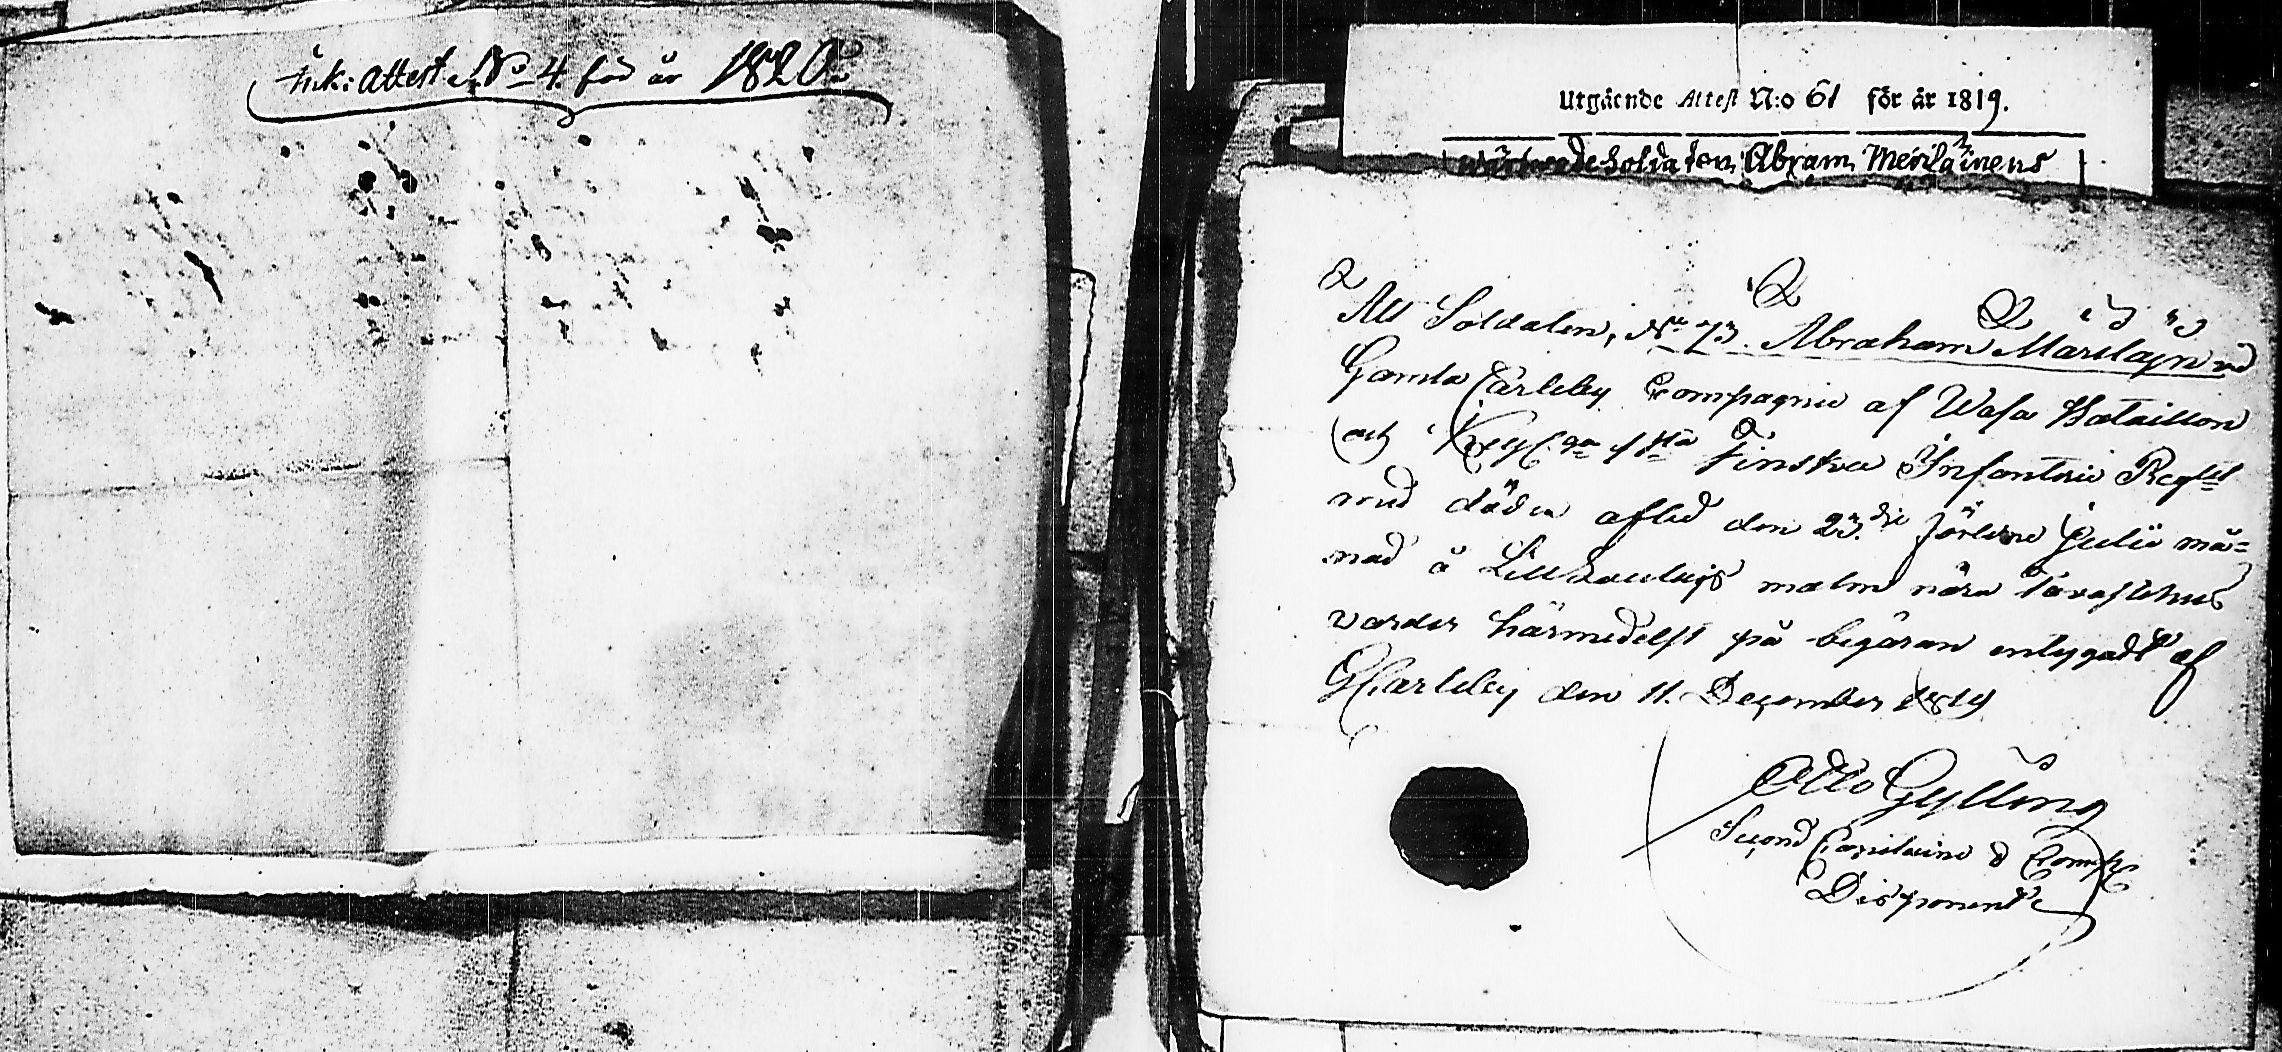 Ink: attest No 4. för år 1820.
Utgående Attest N:o 61 för år 1819.
Wärfvade Soldaten Abram Meriläinens
Att Soldaten, No 73. Abraham Märilayn vid
Gamla Carleby Compagnie af Wasa Bataillon
och Kejs. 1sta Finska Infanterie Regtet
med döden afled den 23.die förledne Julii må=
nad å malm nära Tavastehus
varder härmedelst på begäran intygadt af
GCarleby den 11. December 1819
Otto Gylling
Second Capitaine & Comp.
Disponent